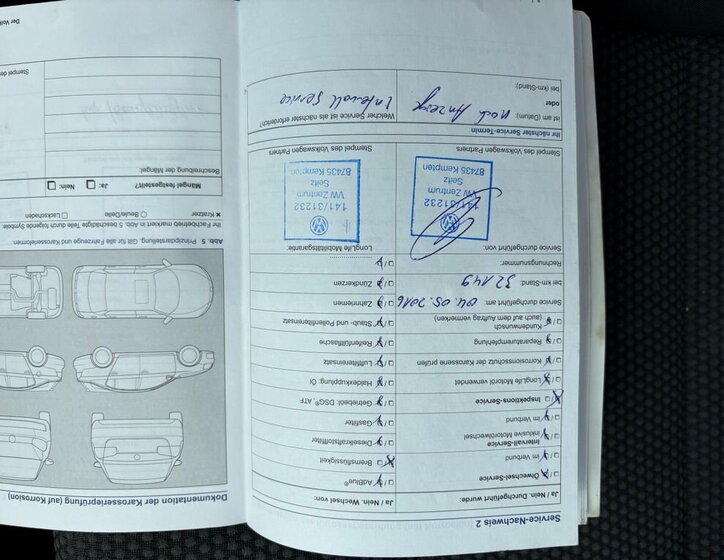 Service-Nachweis 2
Ja / Nein: Durchgeführt wurde:
Ölwechsel-Service
im Verbund
Intervall-Service
inklusive Motorölwechsel
im Verbund
Inspektions-Service
LongLife Motoröl verwendet
Korrosionsschutz der Karosserie prüfen
Reparaturempfehlung
Kundenwunsch
(auch auf dem Auftrag vermerken)
Service durchgeführt am: 04.05.2016
bei km-Stand: 32149
Rechnungsnummer:
Service durchgeführt von:
141/31232
VW Zentrum
Seitz
87435 Kempten
Stempel des Volkswagen Partners
Ja / Nein: Wechsel von:
AdBlue®
Bremsflüssigkeit
Dieselkraftstofffilter
Gasfilter
Getriebeöl: DSG®, ATF
Haldexkupplung: Öl
Luftfiltereinsatz
Reifenfüllflasche
Staub- und Pollenfiltereinsatz
Zahnriemen
Zündkerzen
LongLife Mobilitätsgarantie:
141/31232
VW Zentrum
Seitz
87435 Kempten
Stempel des Volkswagen Partners
Ihr nächster Service-Termin
ist am (Datum): Nach Anzeige
oder
bei (km-Stand):
Welcher Service ist als nächster erforderlich?
Intervall Service
Dokumentation der Karosserieprüfung (auf Korrosion)
Abb. 5 Prinzipdarstellung. Gilt für alle Fahrzeuge und Karosserien.
Ihr Fachbetrieb markiert in Abb. 5 beschädigte Teile durch folgende Symbole
Kratzer
Beule/Delle
Lackschaden
Mängel festgestellt? Ja: Nein:
Beschreibung der Mängel:
Stempel des